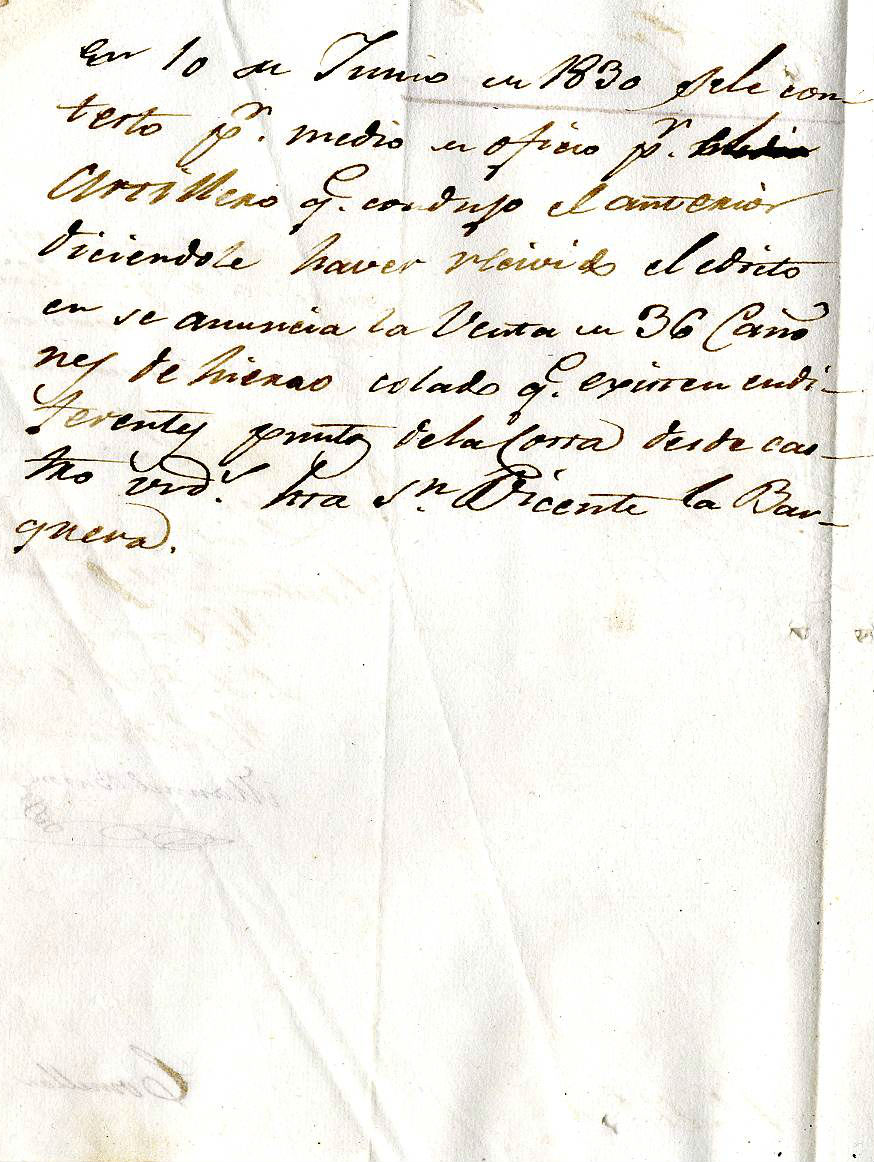 En 10 de Junio de 1830 se le con-
texto pr. medio de oficio pr.
Artillero q. condujo el anterior
diciendole haver recivido el edicto
en se anuncia la Venta de 36 Caño
nes de hierro colado q. existen en di-
ferentes puntos de la Costa desde cas-
tro urds. hta Sn. Vicente la Bar-
quera.